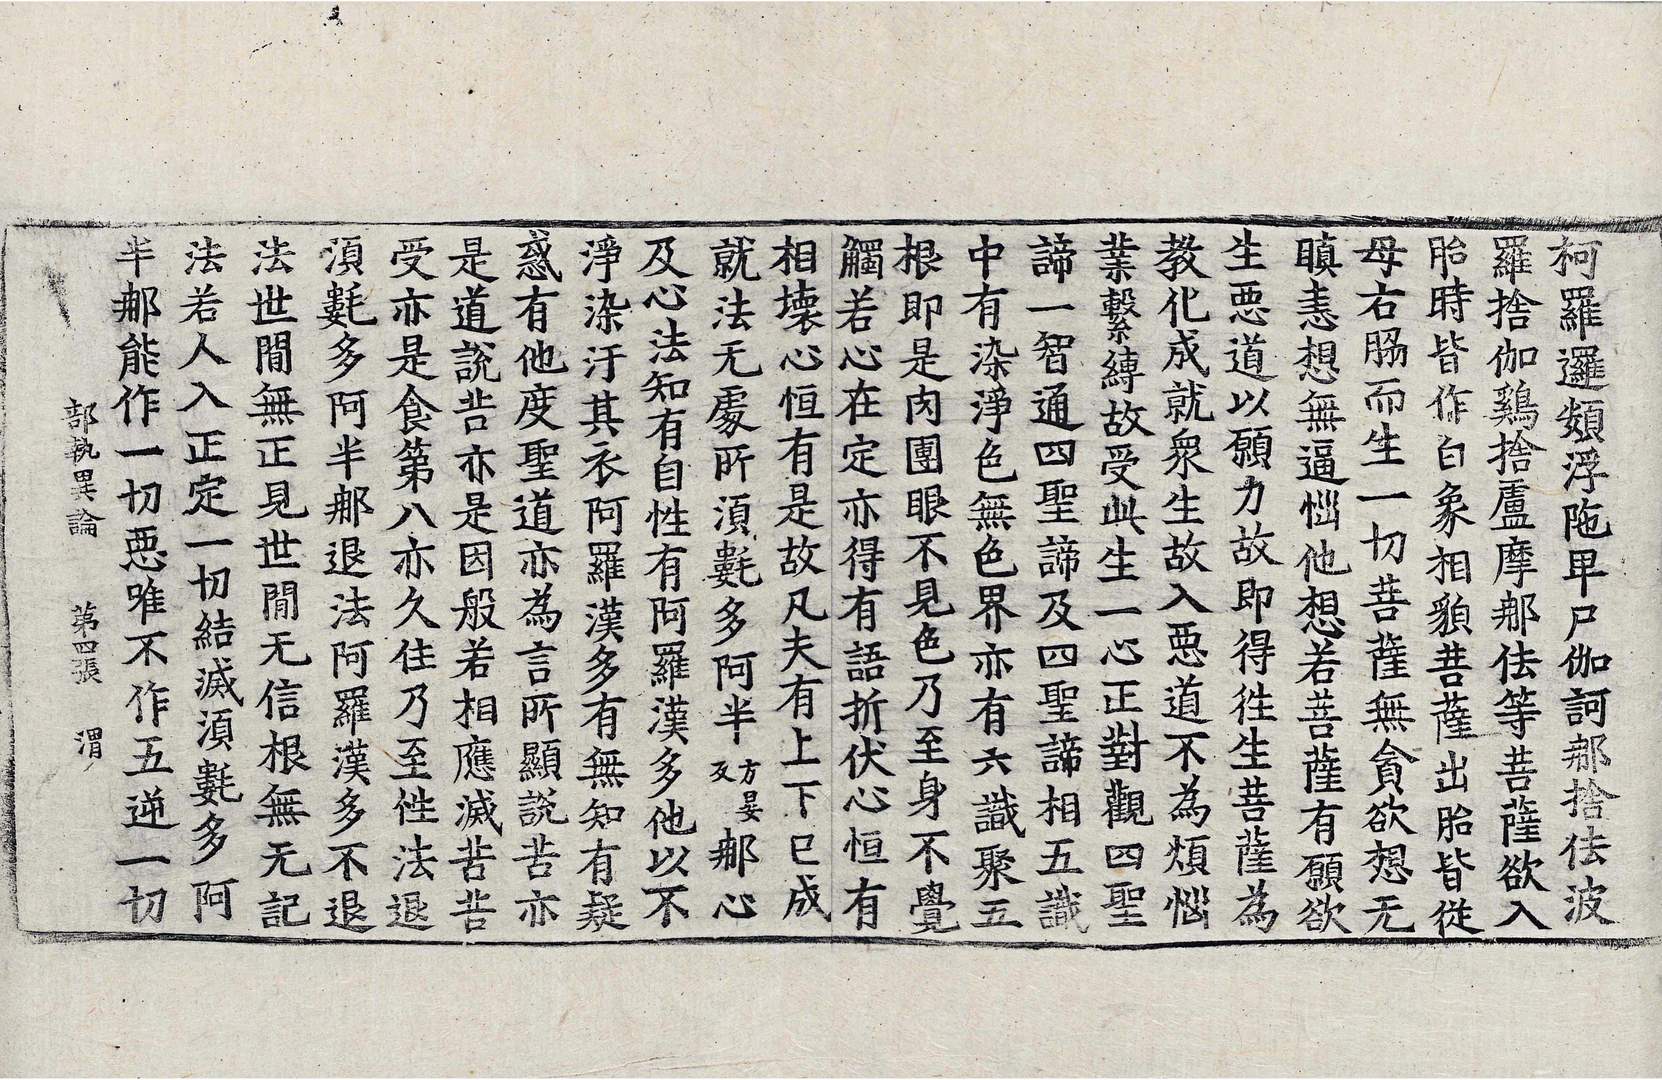 柯羅邏頞浮陁甲尸伽訶那捨佉波
羅捨伽鷄捨盧摩那佉等菩薩欲入
胎時皆作白象相貌菩薩出胎皆從
母右脇而生一切菩薩無貪欲想无
瞋恚想無逼惱他想若菩薩有願欲
生惡道以願力故即得徃生菩薩為
教化成就衆生故入惡道不為煩惱
業繫縛故受此生一心正對觀四聖
諦一智通四聖諦及四聖諦相五識
中有染淨色無色界亦有六識聚五
根即是肉團眼不見色乃至身不覺
觸若心在定亦得有語折伏心恒有
相壞心恒有是故凡夫有上下已成
就法无處所湏氀多阿半方晏反那心
及心法知有自性有阿羅漢多他以不
淨染汙其衣阿羅漢多有無知有疑
惑有他度聖道亦為言所顯說苦亦
是道說苦亦是因般若相應滅苦苦
受亦是食第八亦久住乃至性法退
湏氀多阿半那退法阿羅漢多不退
法世間無正見世間无信根無无記
法若人入正定一切結滅湏氀多阿
半那能作一切惡唯不作五逆一切
部執異論　第四張　渭